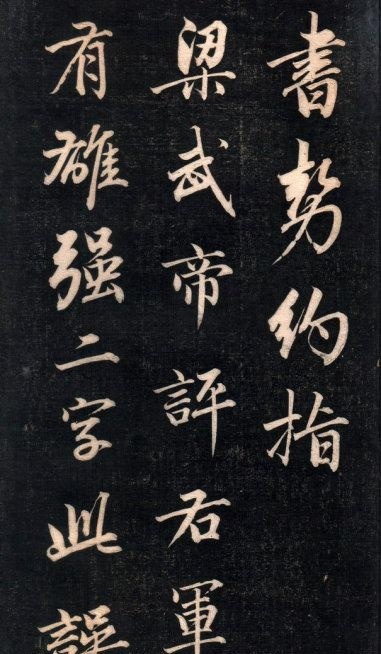 書勢約指
梁武帝評右軍
有雄强二字此